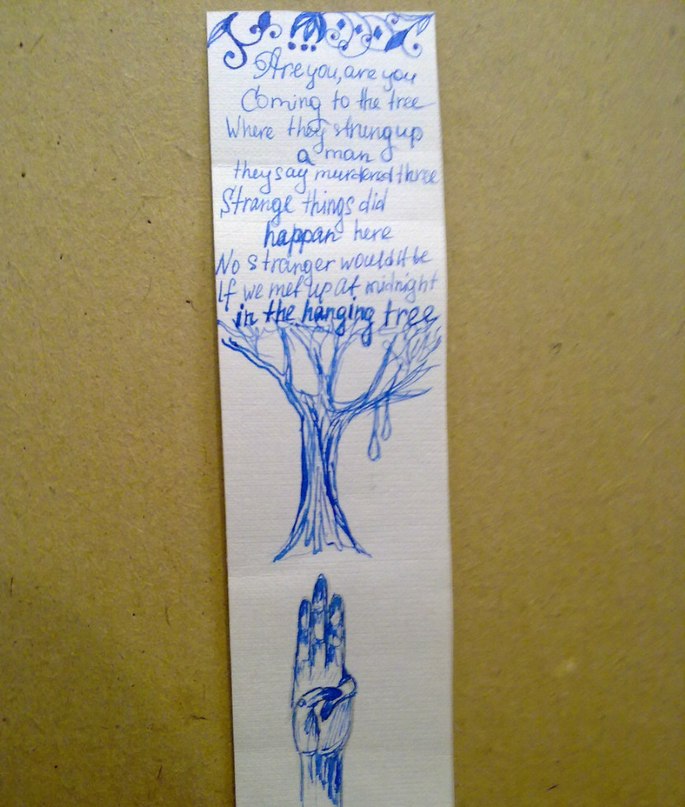 Are you, are you
Coming to the tree
Where they strung up
a man
they say murdered three
Strange things did
happan here
No stranger would it be
If we met up at midnight
in the hanging tree